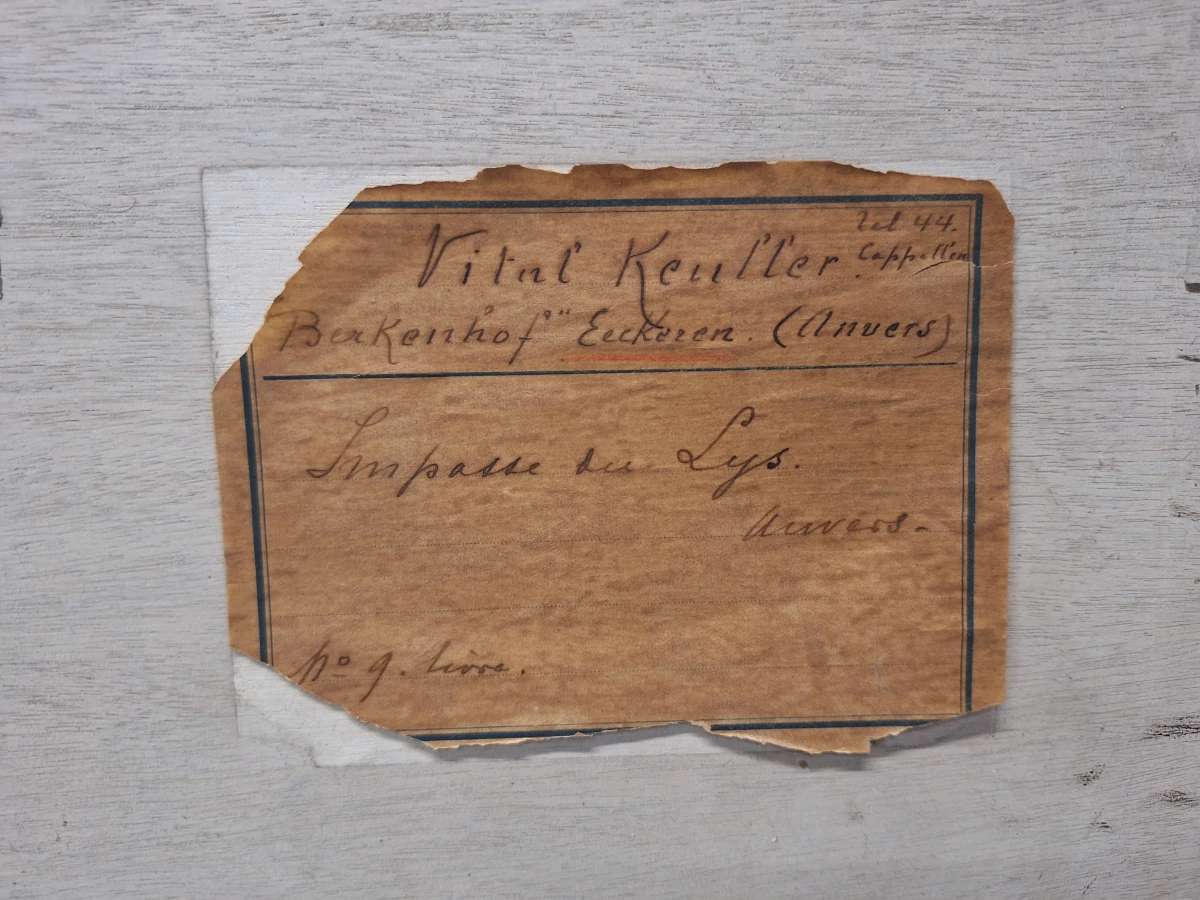 Tel 44.
Vital Keuller Cappellen
Berkenhof" Eeckeren. (Anvers)
Impasse du Lys.
Anvers.
No 9. livre.